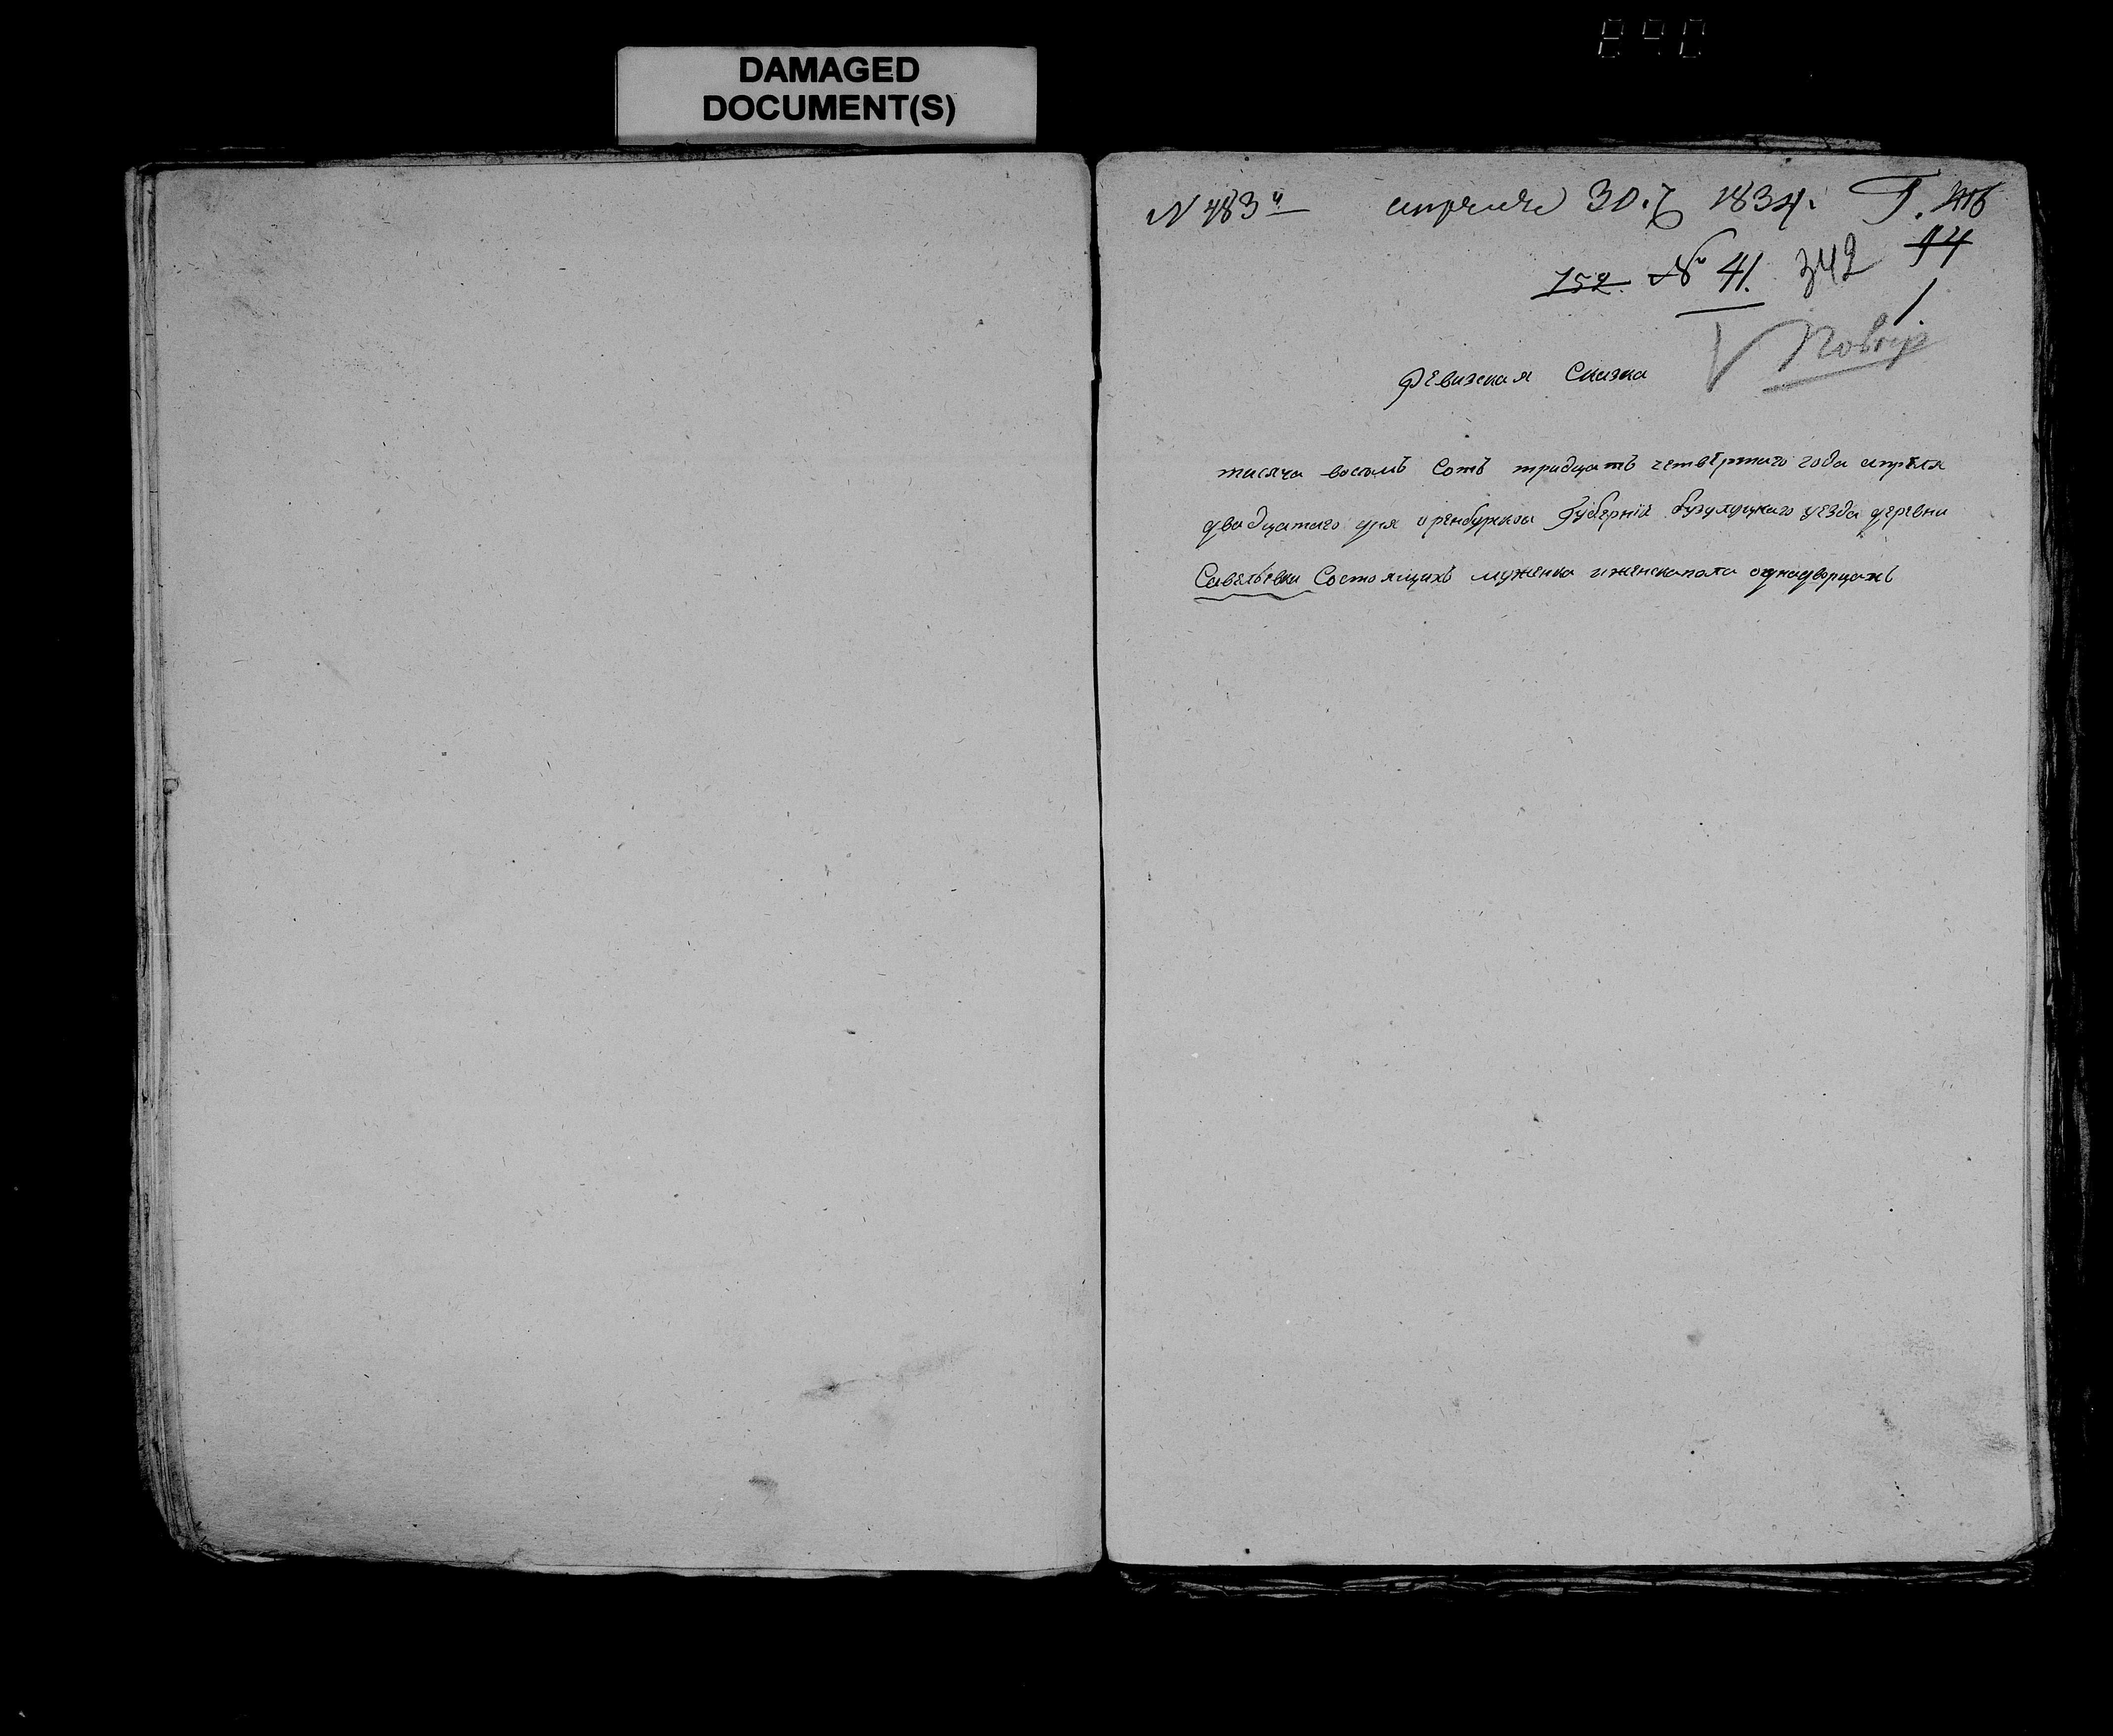 DAMAGED
DOCUMENT(S)
N 483й апреля 30. 1834. Г.
152. № 41. 342 14
1.
Повер
Ревизская Сказка
тисяча восемь Сотъ тридцать четвёртаго года апреля
двадцатаго дня оренбурской Губерніи бузулуцкаго уезда деревни
Савельевки Состоящихъ мужеска иженскапола однадворцахъ